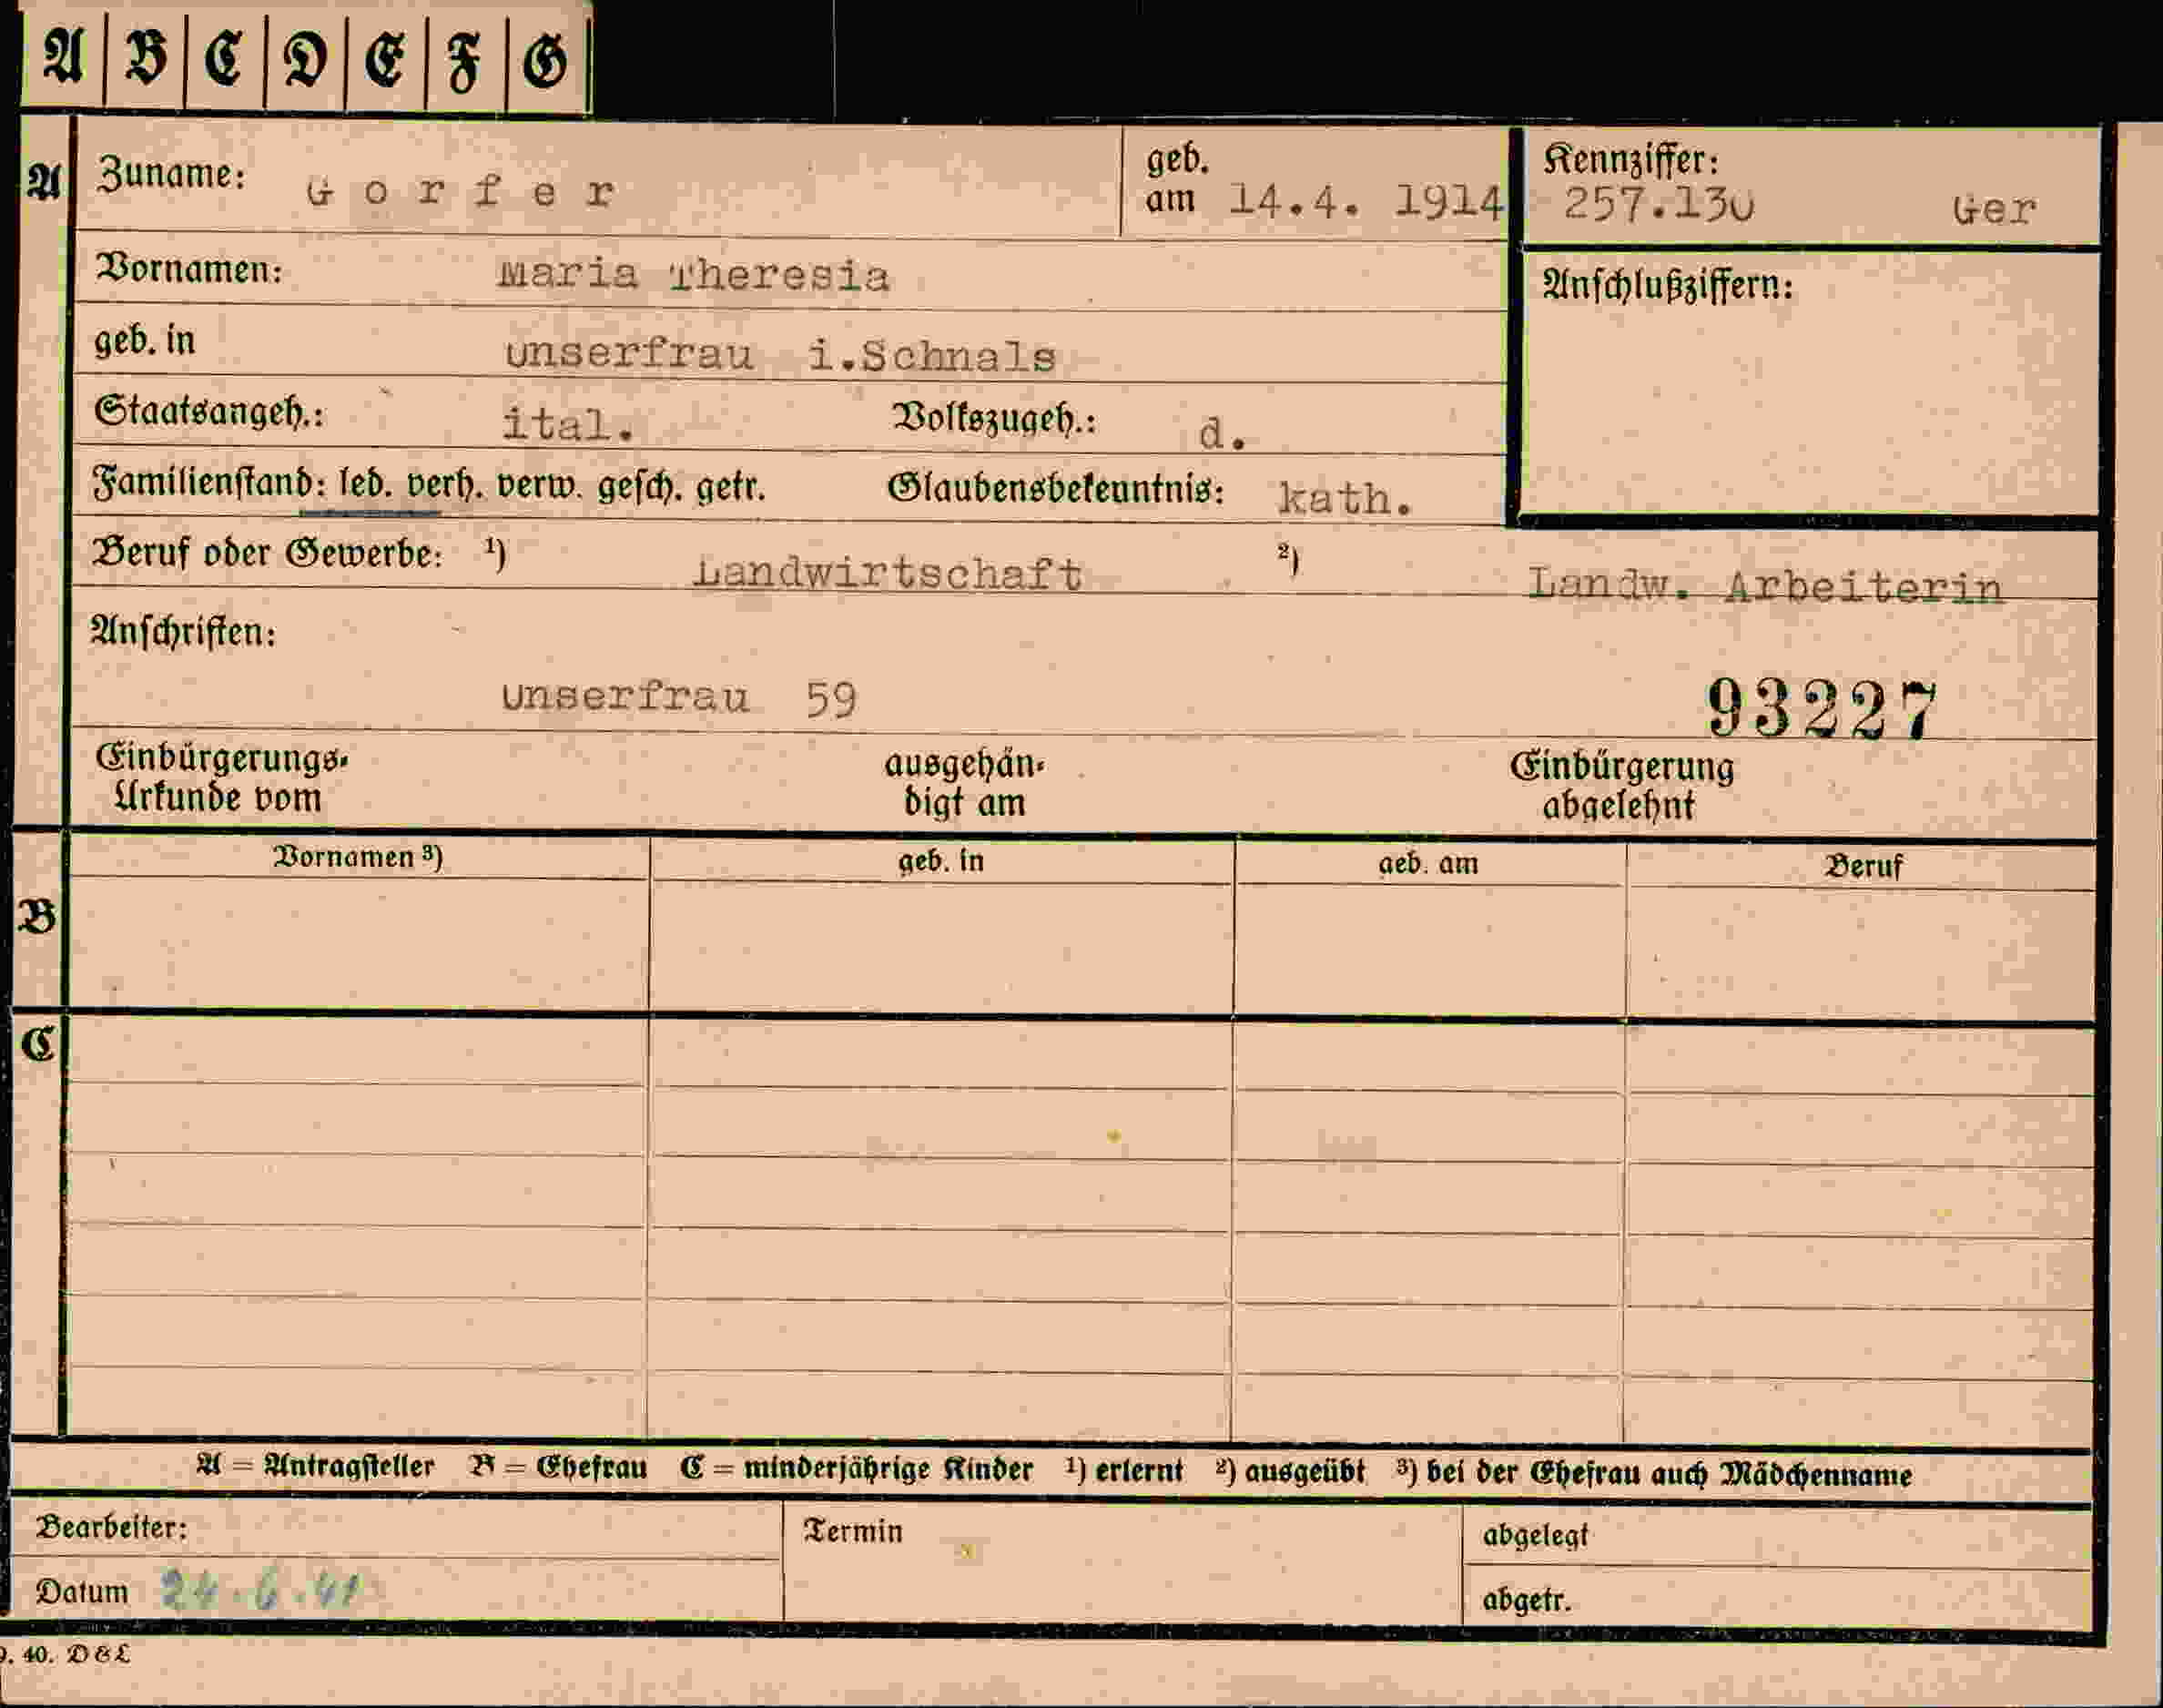 A B C D E F G
A Zuname: Gorfer geb. am 14.4. 1914 Kennziffer: 257.130 Ger
Vornamen: Maria Theresia Anschlußziffern:
geb. in Unserfrau i.Schnals
Staatsangeh.: ital. Volkszugeh.: d.
Familienstand: led. verh. verw. gesch. getr. Glaubensbekenntnis: kath.
Beruf oder Gewerbe: ¹) Landwirtschaft ²) Landw. Arbeiterin
Anschriften:
Unserfrau 59 93227
Einbürgerungs- ausgehän- Einbürgerung
Urkunde vom digt am abgelehnt
Vornamen ³) geb. in geb. am Beruf
B
C
A = Antragsteller B = Ehefrau C = minderjährige Kinder ¹) erlernt ²) ausgeübt ³) bei der Ehefrau auch Mädchenname
Bearbeiter: Termin abgelegt
Datum 24.6.41 abgetr.
9. 40. D & L